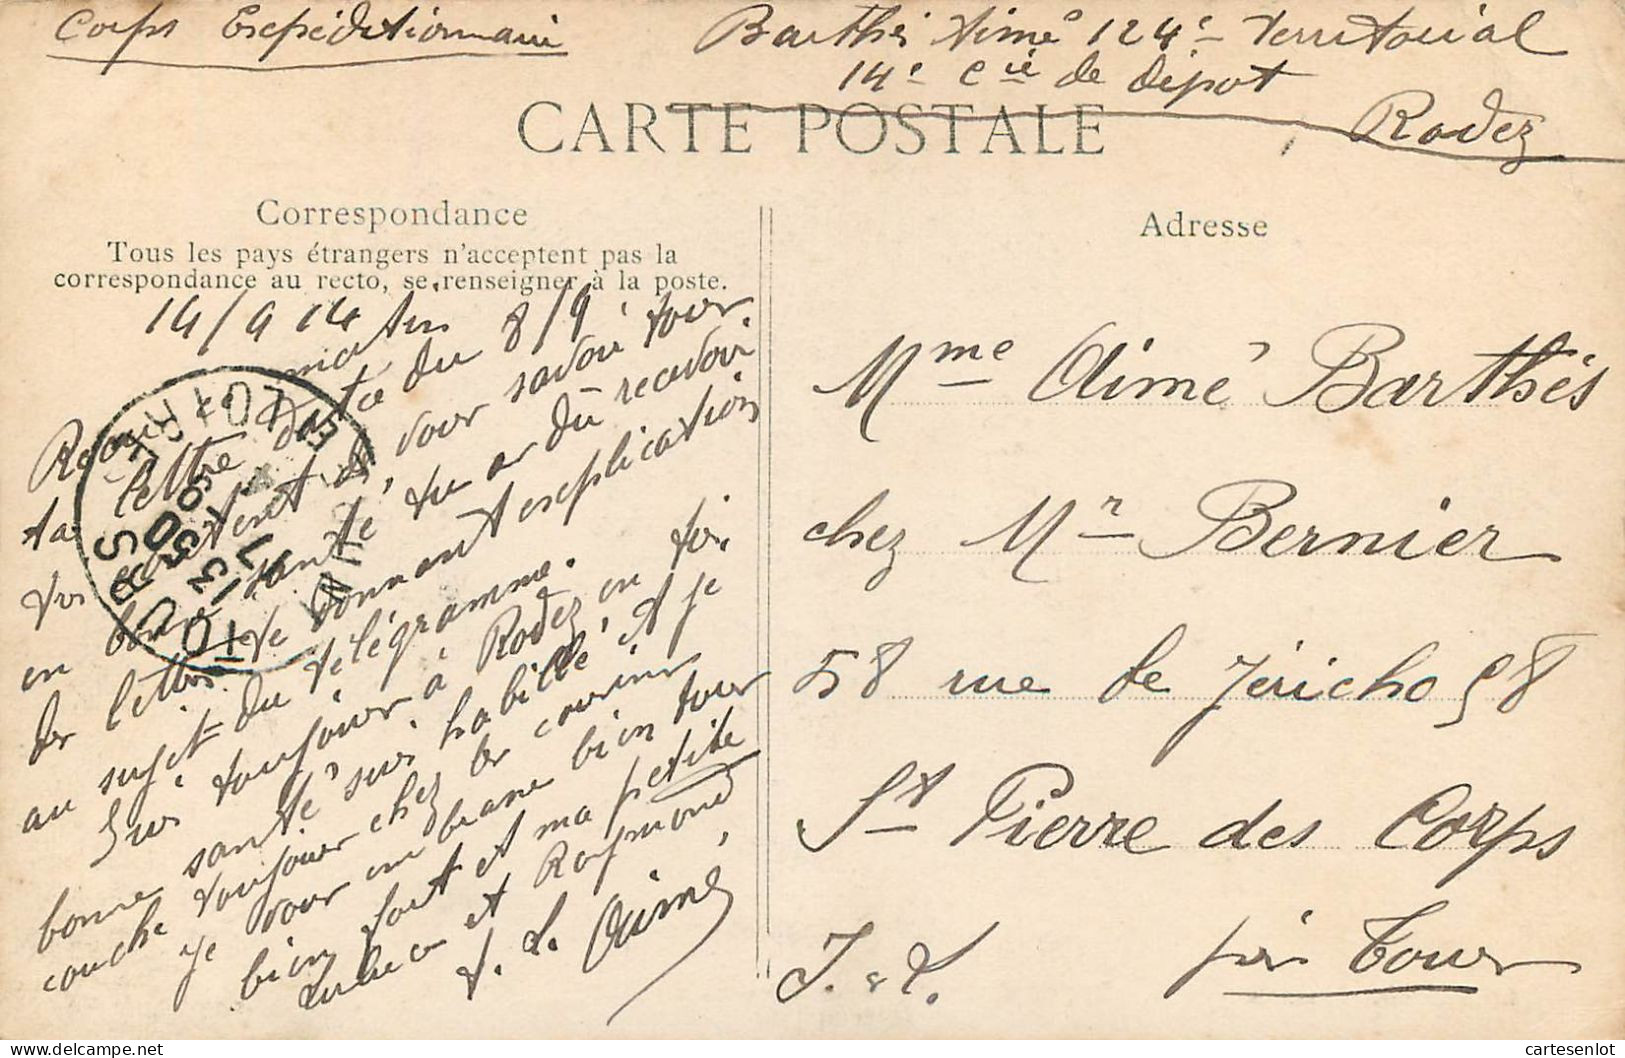 Corps Expéditionnaire
Barthés Aimé 124e Territorial
14e Cie de dépot
Rodez
CARTE POSTALE
Correspondance
Tous les pays étrangers n'acceptent pas la
correspondance au recto, se renseigner à la poste.
Adresse
14/9 14
Reçu ce matin
ta lettre datée du 8/9
content de vour savoir tour
en bonne santé, tu as du recevoir
der lettre te donnant explication
au sujet du télégramme.
Suis toujour à Rodez en
bonne santé, suis habillé, et je
couche toujour chez les cousins
je vour embrasse bien tour
bien fort et ma petite
et Raymond
Aimé
Mme Aimé Barthés
chez Mr Bernier
58 rue de Jéricho 58
St Pierre des Corps
I. & L. pré Tour
TOURS
INDRE ET LOIRE
cartesenlot